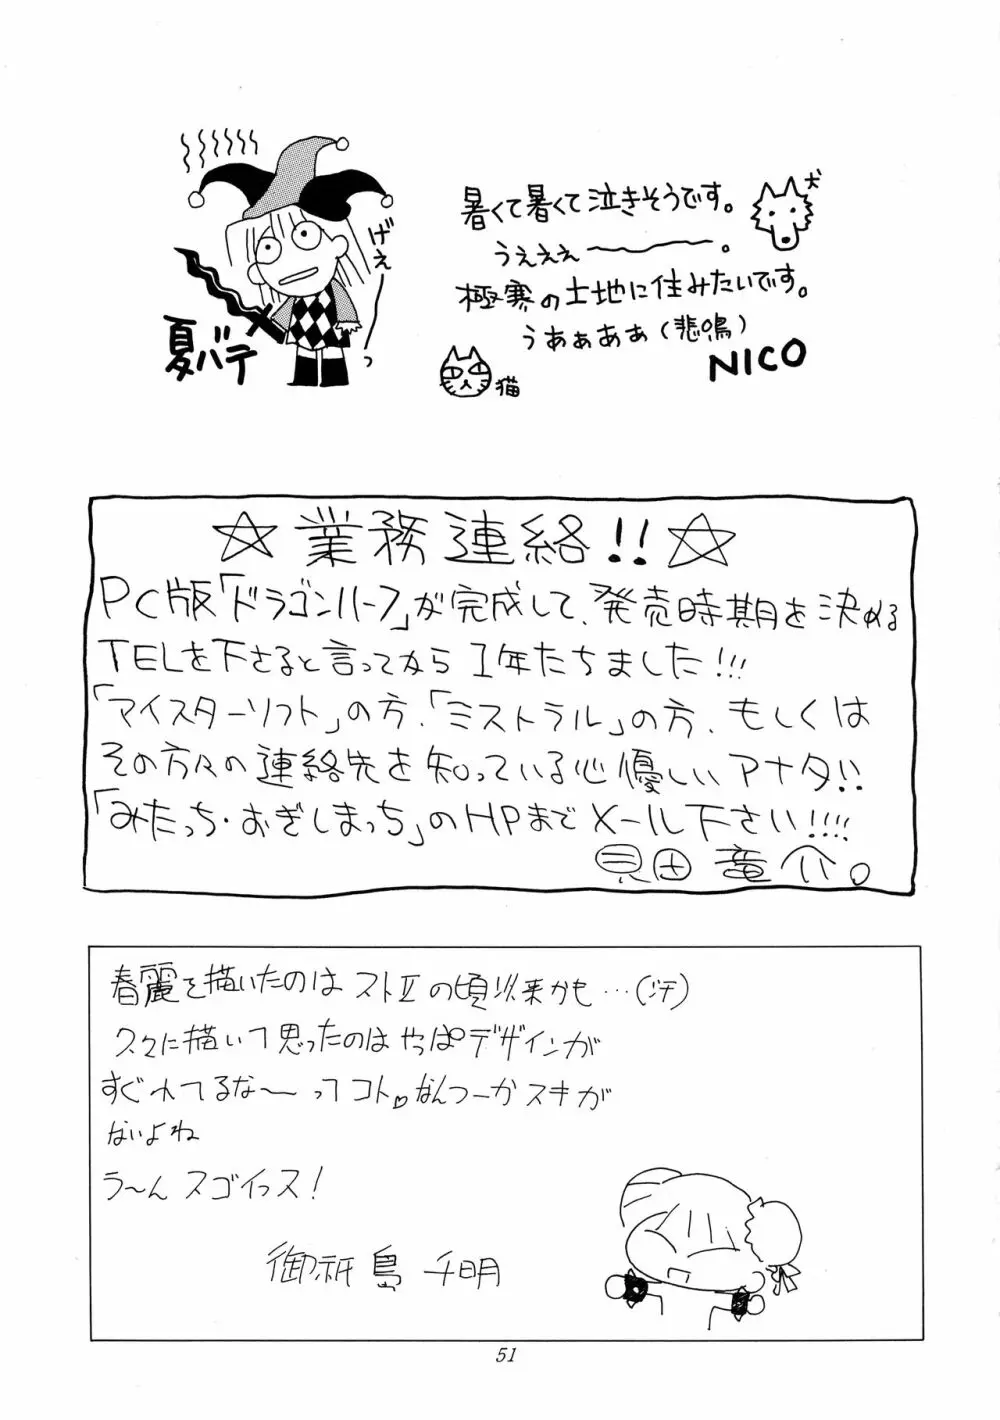 暑くて暑くて泣きそうです。
犬
うぇぇぇ〜〜。
極寒の土地に住みたいです。
うあぁぁぁ(悲鳴)
NICO
猫
げぇーっ
夏バテ
☆業務連絡!!☆
PC版「ドラゴンハーフ」が完成して、発売時期を決める
TELを下さると言ってから1年たちました!!!
「マイスターソフト」の方、「ミストラル」の方、もしくは
その方々の連絡先を知っている心優しいアナタ!!
「みたっち・おぎしまっち」のHPまでメール下さい!!!!
見田竜介。
春麗を描いたのはストIIの頃以来かも…(汗)
久々に描いて思ったのはやっぱデザインが
すぐれてるな〜ってコト。なんつーかスキが
ないよね
う〜んスゴイっス!
御祇島千明
51